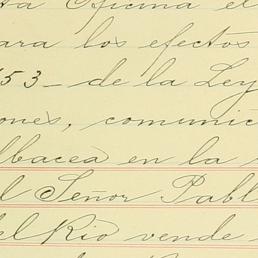 ta Oficina el
ara los efectos
53 - de la Ley
ones, comunic
lbacea en la
l Señor Pabl
del Rio vende